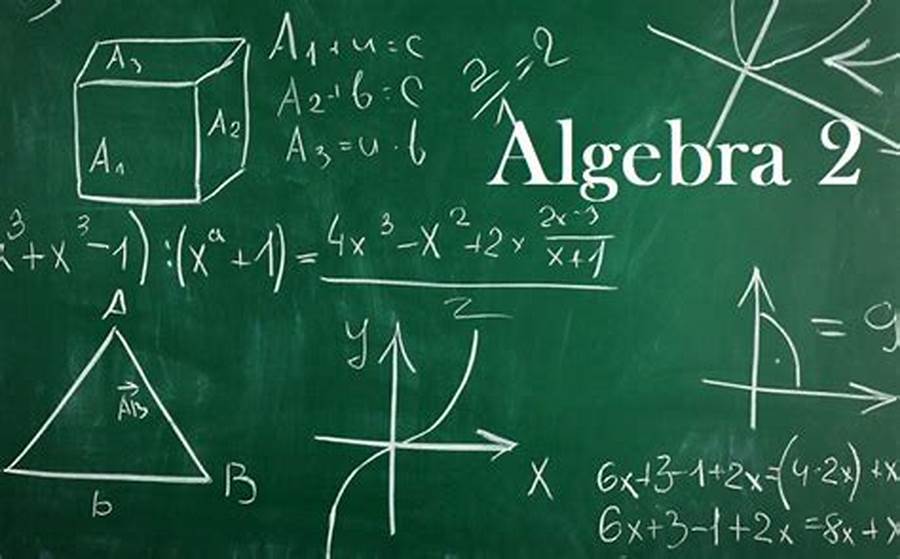 A₃
A₁
A₂
A₁+u=c
A₂+b=c
A₃=u·b
2/1=2
Algebra 2
³+x³-1):(xᵃ+1)=4x³-x²+2x (2x-3)/(x+1)
2
A
AB
B
b
y
X
=
6x+3-1+2x=(4·2x)+x
6x+3-1+2x=8x+x